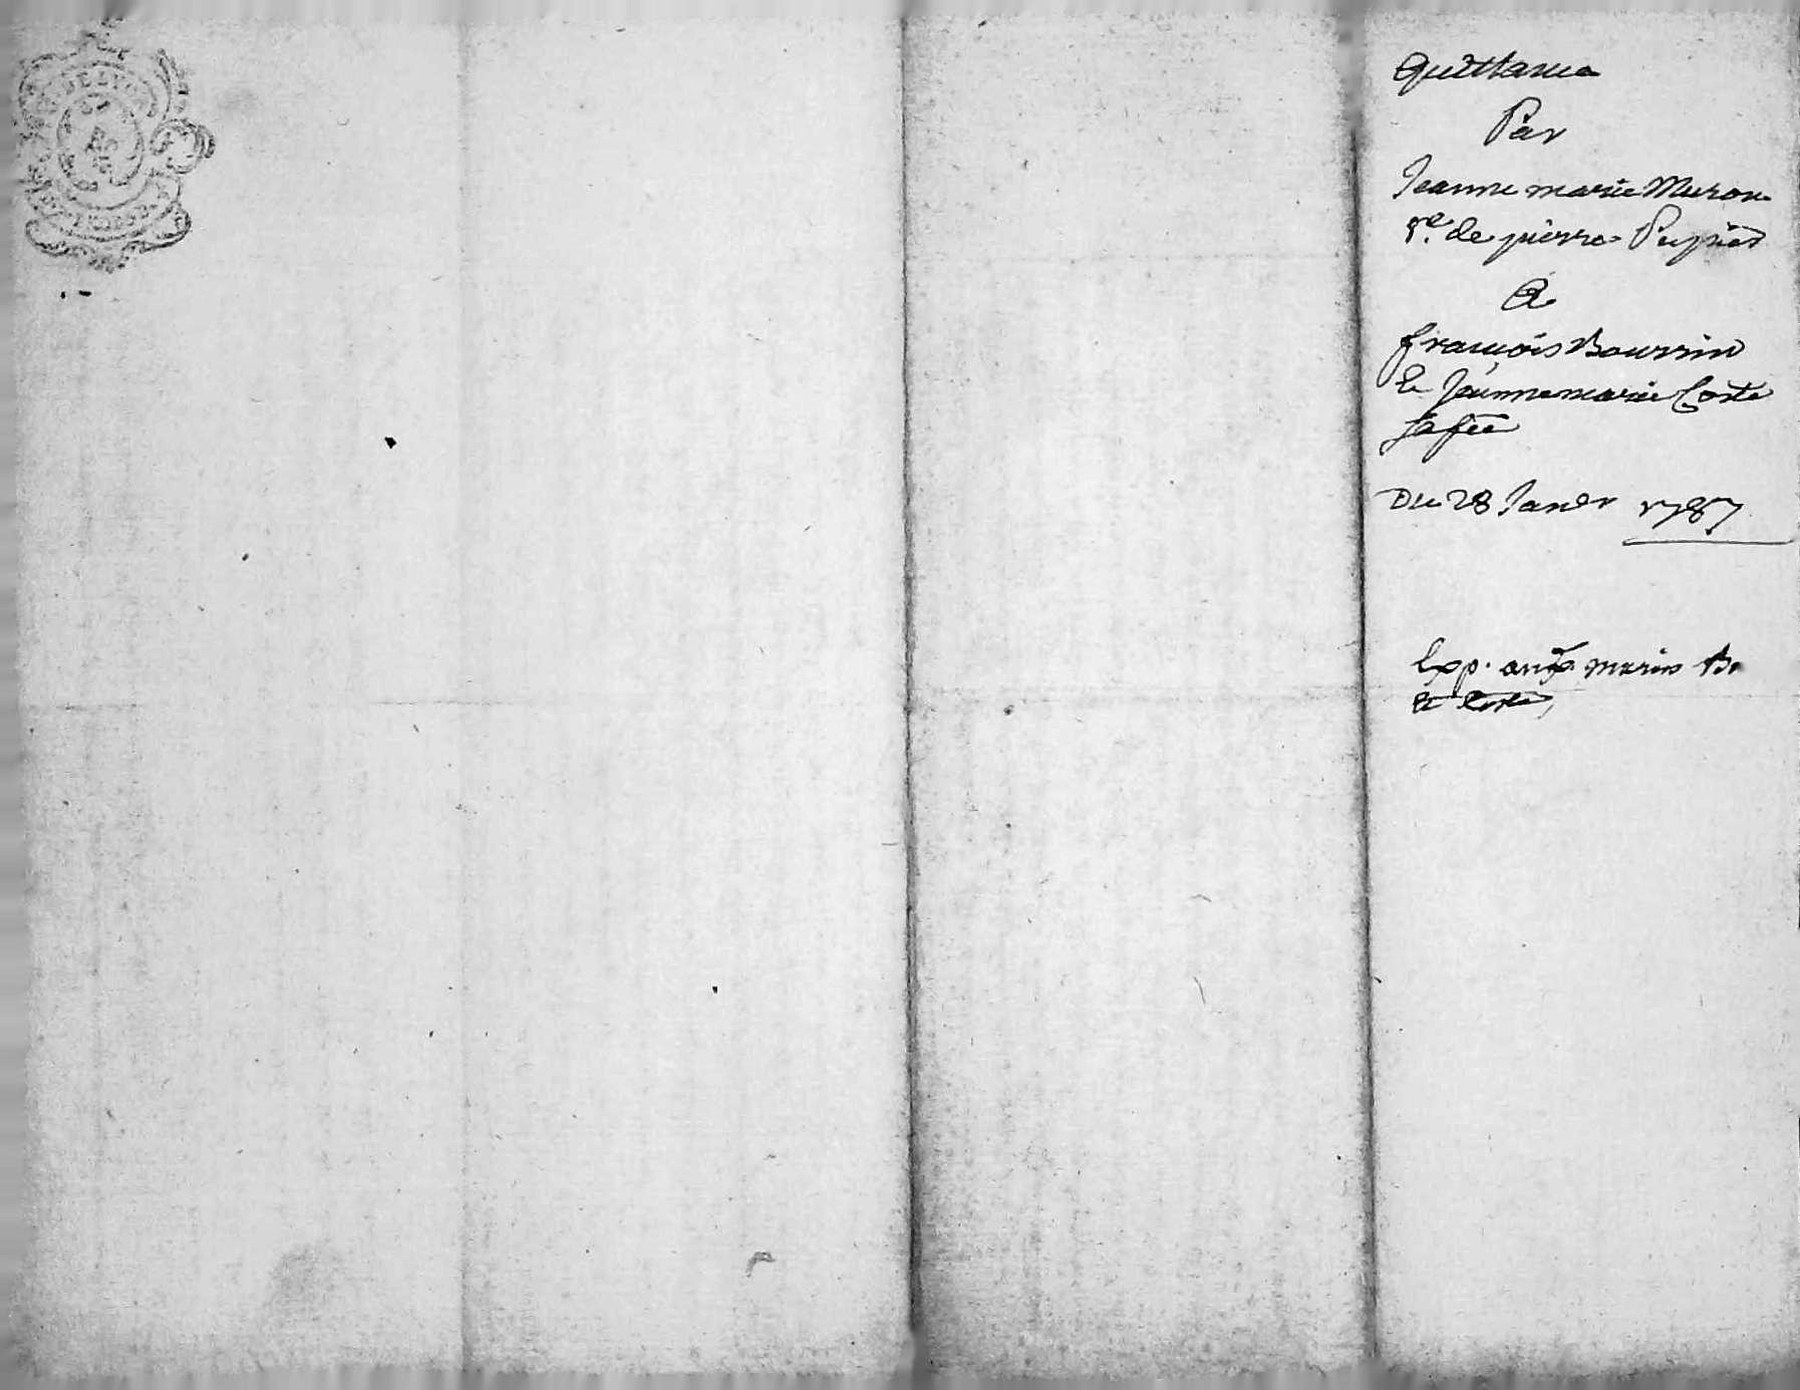 Quittance
Par
Jeanne marie Muron
Ve. de pierre Pupier
A
françois Bourrin
Et Jeanne marie Coste
sa fe
Du 28 Janer 1787
Exp. aux mariés B.
et Coste